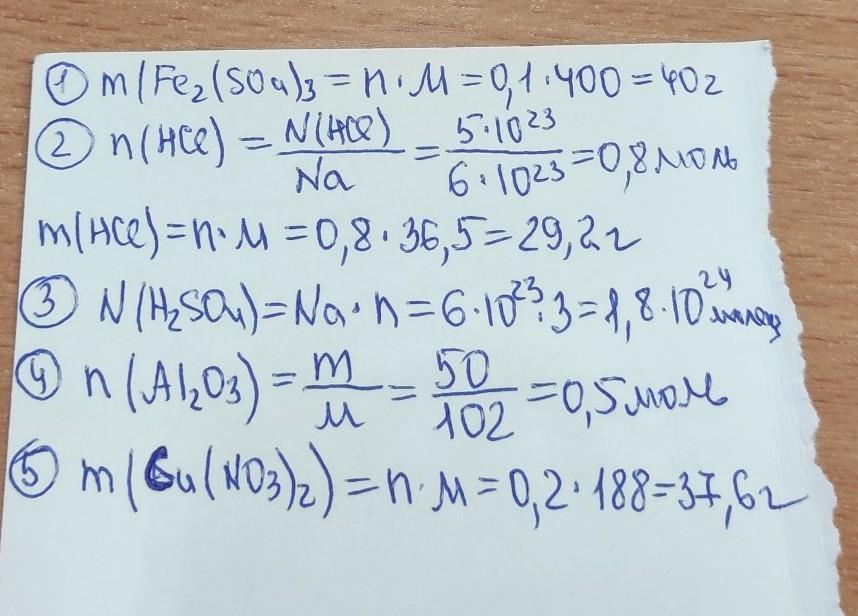 ① m(Fe₂(SO₄)₃ = n·M = 0,1·400 = 40г
② n(HCl) = N(HCl)/Na = 5·10²³/6·10²³ = 0,8 моль
m(HCl) = n·M = 0,8·36,5 = 29,2г
③ N(H₂SO₄) = Na·n = 6·10²³·3 = 1,8·10²⁴
④ n(Al₂O₃) = m/M = 50/102 = 0,5 моль
⑤ m(Cu(NO₃)₂) = n·M = 0,2·188 = 37,6г